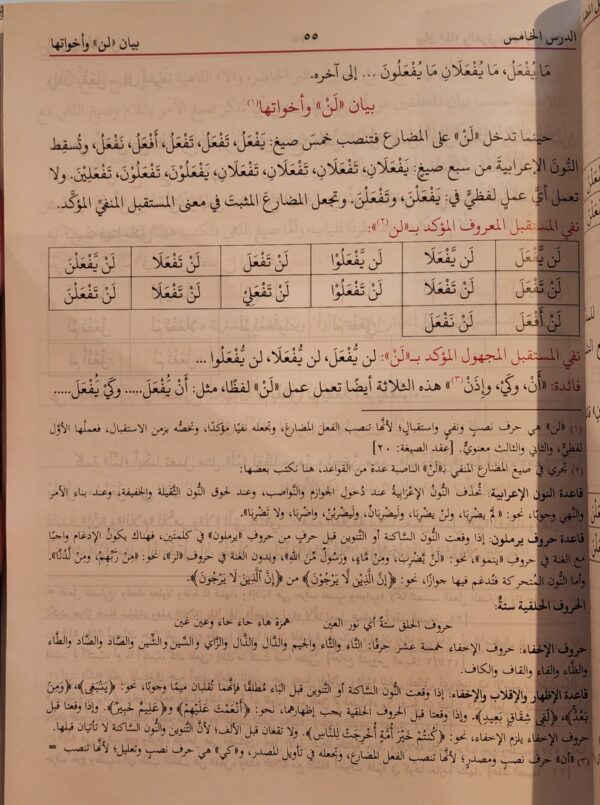 الدرس الخامس ٥٥ بيان «لن» وأخواتها
مَا يُفْعَلُ، مَا يُفْعَلَانِ مَا يُفْعَلُونَ ... إلى آخره.
بيان «لَنْ» وأخواتها(١)
حينما تدخل «لَنْ» على المضارع فتنصب خمسَ صيغ: يَفْعَلُ، تَفْعَلُ، تَفْعَلُ، أَفْعَلُ، نَفْعَلُ، وتُسقِط
النُّونَ الإعرابيةَ من سبع صيغ: يَفْعَلَانِ، تَفْعَلَانِ، تَفْعَلَانِ، تَفْعَلَانِ، يَفْعَلُوْنَ، تَفْعَلُوْنَ، تَفْعَلِيْنَ. ولا
تعمل أيَّ عملٍ لفظيٍّ في: يَفْعَلْنَ، وتَفْعَلْنَ. وتجعل المضارعَ المثبتَ في معنى المستقبل المنفيِّ المؤكَّد.
نفي المستقبل المعروف المؤكد بـ«لن(٢)»:
لَنْ يَّفْعَلَ لَنْ يَّفْعَلَا لَنْ يَّفْعَلُوْا لَنْ تَفْعَلَ لَنْ تَفْعَلَا لَنْ يَّفْعَلْنَ
لَنْ تَفْعَلَ لَنْ تَفْعَلَا لَنْ تَفْعَلُوْا لَنْ تَفْعَلِيْ لَنْ تَفْعَلَا لَنْ تَفْعَلْنَ
لَنْ أَفْعَلَ لَنْ نَفْعَلَ
نفي المستقبل المجهول المؤكد بـ«لَنْ»: لن يُفْعَلَ، لن يُفْعَلَا، لن يُفْعَلُوا ...
فائدة: «أَنْ، وكَيْ، وإِذَنْ(٣)» هذه الثلاثة أيضًا تعمل عمل «لَنْ» لفظًا، مثل: أَنْ يَفْعَلَ..... وكَيْ يَفْعَلَ.....
(١) «لن» هي حرف نصبٍ ونفيٍ واستقبالٍ؛ لأنَّها تنصب الفعل المضارع، وتجعله نفيًا مؤكدًا، وتخصُّه بزمن الاستقبال، فعملُها الأوَّل
لفظيٌّ، والثاني والثالث معنويٌّ. [عقد الصيغة: ٢٠]
(٢) تجري في صيغ المضارع المنفي بـ«لَنْ» الناصبة عدة من القواعد، هنا نكتب بعضها:
قاعدة النون الإعرابية: تُحذَف النُّونُ الإعْرَابِيةُ عند دُخول الجوازم والنَّواصب، وعند لحوق النُّون الثَّقيلة والخفيفة، وعند بناء الأمر
والنَّهي وجوبًا، نحو: «لَمْ يضْرِبَا، ولنْ يضْرِبَا، ولَيَضْرِبَانِّ، ولَيَضْرِبُنْ، واضْرِبَا، ولا تَضْرِبَا».
قاعدة حروف يرملون: إذا وقعت النُّون السَّاكنة أو التَّنوين قبل حرفٍ من حروف «يرملون» في كلمتَين، فهناك يكونُ الإدغام واجبًا
مع الغنة في حروف «ينمو»، نحو: «لَنْ يَّضْرِبَ، ومِنْ مَّاءٍ، ورَسُولٌ مِّنَ اللهِ»، وبدون الغنة في حروف «لر»، نحو: «مِنْ رَّبِّهِمْ، ومِنْ لَّدُنَّا».
وأما النُّون المُتحركة فتُدغم فيها جوازًا، نحو: ﴿إِنَّ الَّذِيْن لَّا يَرْجُوْنَ﴾ من ﴿إِنَّ ٱلَّذِينَ لَا يَرْجُونَ﴾.
الحروف الحلقية ستةٌ:
حروف الحلق ستةٌ أي نور العين همزة هاء حاء خاء وعين غين
حروف الإخفاء: حروفُ الإخفاء خمسة عشر حرفًا: التَّاء والثَّاء والجيم والدَّال والذَّال والزَّاي والسِّين والشِّين والصَّاد والضَّاد والطَّاء
والظَّاء والفاء والقاف والكاف.
قاعدة الإظهار والإقلاب والإخفاء: إذا وقعت النُّون السَّاكنة أو التَّنوين قبل البَاء مُطلقًا فإنَّهما تُقلبان ميمًا وجوبًا، نحو: ﴿يَنۢبَغِى﴾، ﴿وَمِنۢ
بَعْدُ﴾، ﴿لَفِى شِقَاقٍ بَعِيدٍ﴾. وإذا وقعتا قبل الحروف الحلقية يجب إظهارهما، نحو: ﴿أَنْعَمْتَ عَلَيْهِمْ﴾ و﴿عَلِيمٌ خَبِيرٌ﴾. وإذا وقعتا قبل
حروف الإخفاء يلزم الإخفاء، نحو: ﴿كُنتُمْ خَيْرَ أُمَّةٍ أُخْرِجَتْ لِلنَّاسِ﴾. ولا تقعان قبل الألف؛ لأنَّ التَّنوين والنُّون السَّاكنة لا تأتيان قبلها.
(٣) «أن» حرف نصبٍ ومصدرٍ؛ لأنَّها تنصب الفعل المضارع، وتجعله في تأويل المصدر، و«كي» هي حرف نصبٍ وتعليلٍ؛ لأنَّها تنصب =